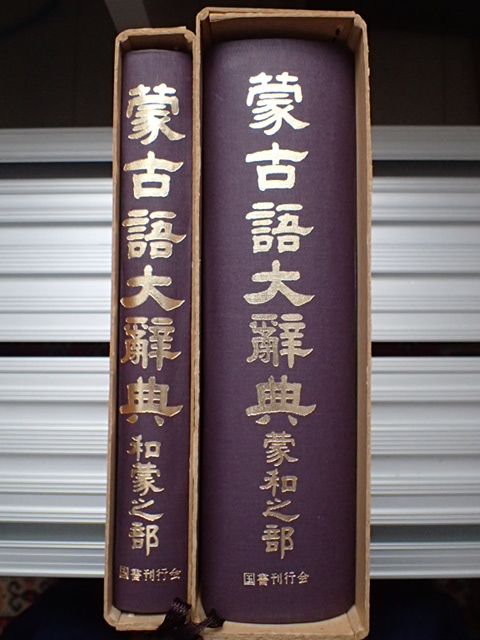 蒙古語大辭典 和蒙之部
国書刊行会
蒙古語大辭典 蒙和之部
国書刊行会